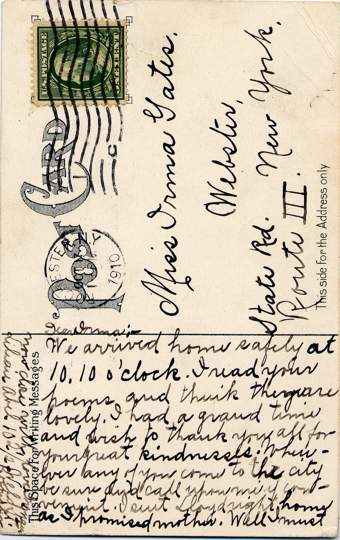 POST CARD
1910
U.S. POSTAGE
This side for the Address only
Miss Irma Gates,
Webster,
State Rd. New York.
Route III.
This Space for Writing Messages
Dear Irma;-
We arrived home safely at
10.10 o'clock. I read your
poems and think they are
lovely. I had a grand time
and wish to thank you all for
your great kindnesses. When-
ever any of you come to the city
be sure and call upon me if con-
venient. I sent Lloyd right home
as I promised mother. Well I must